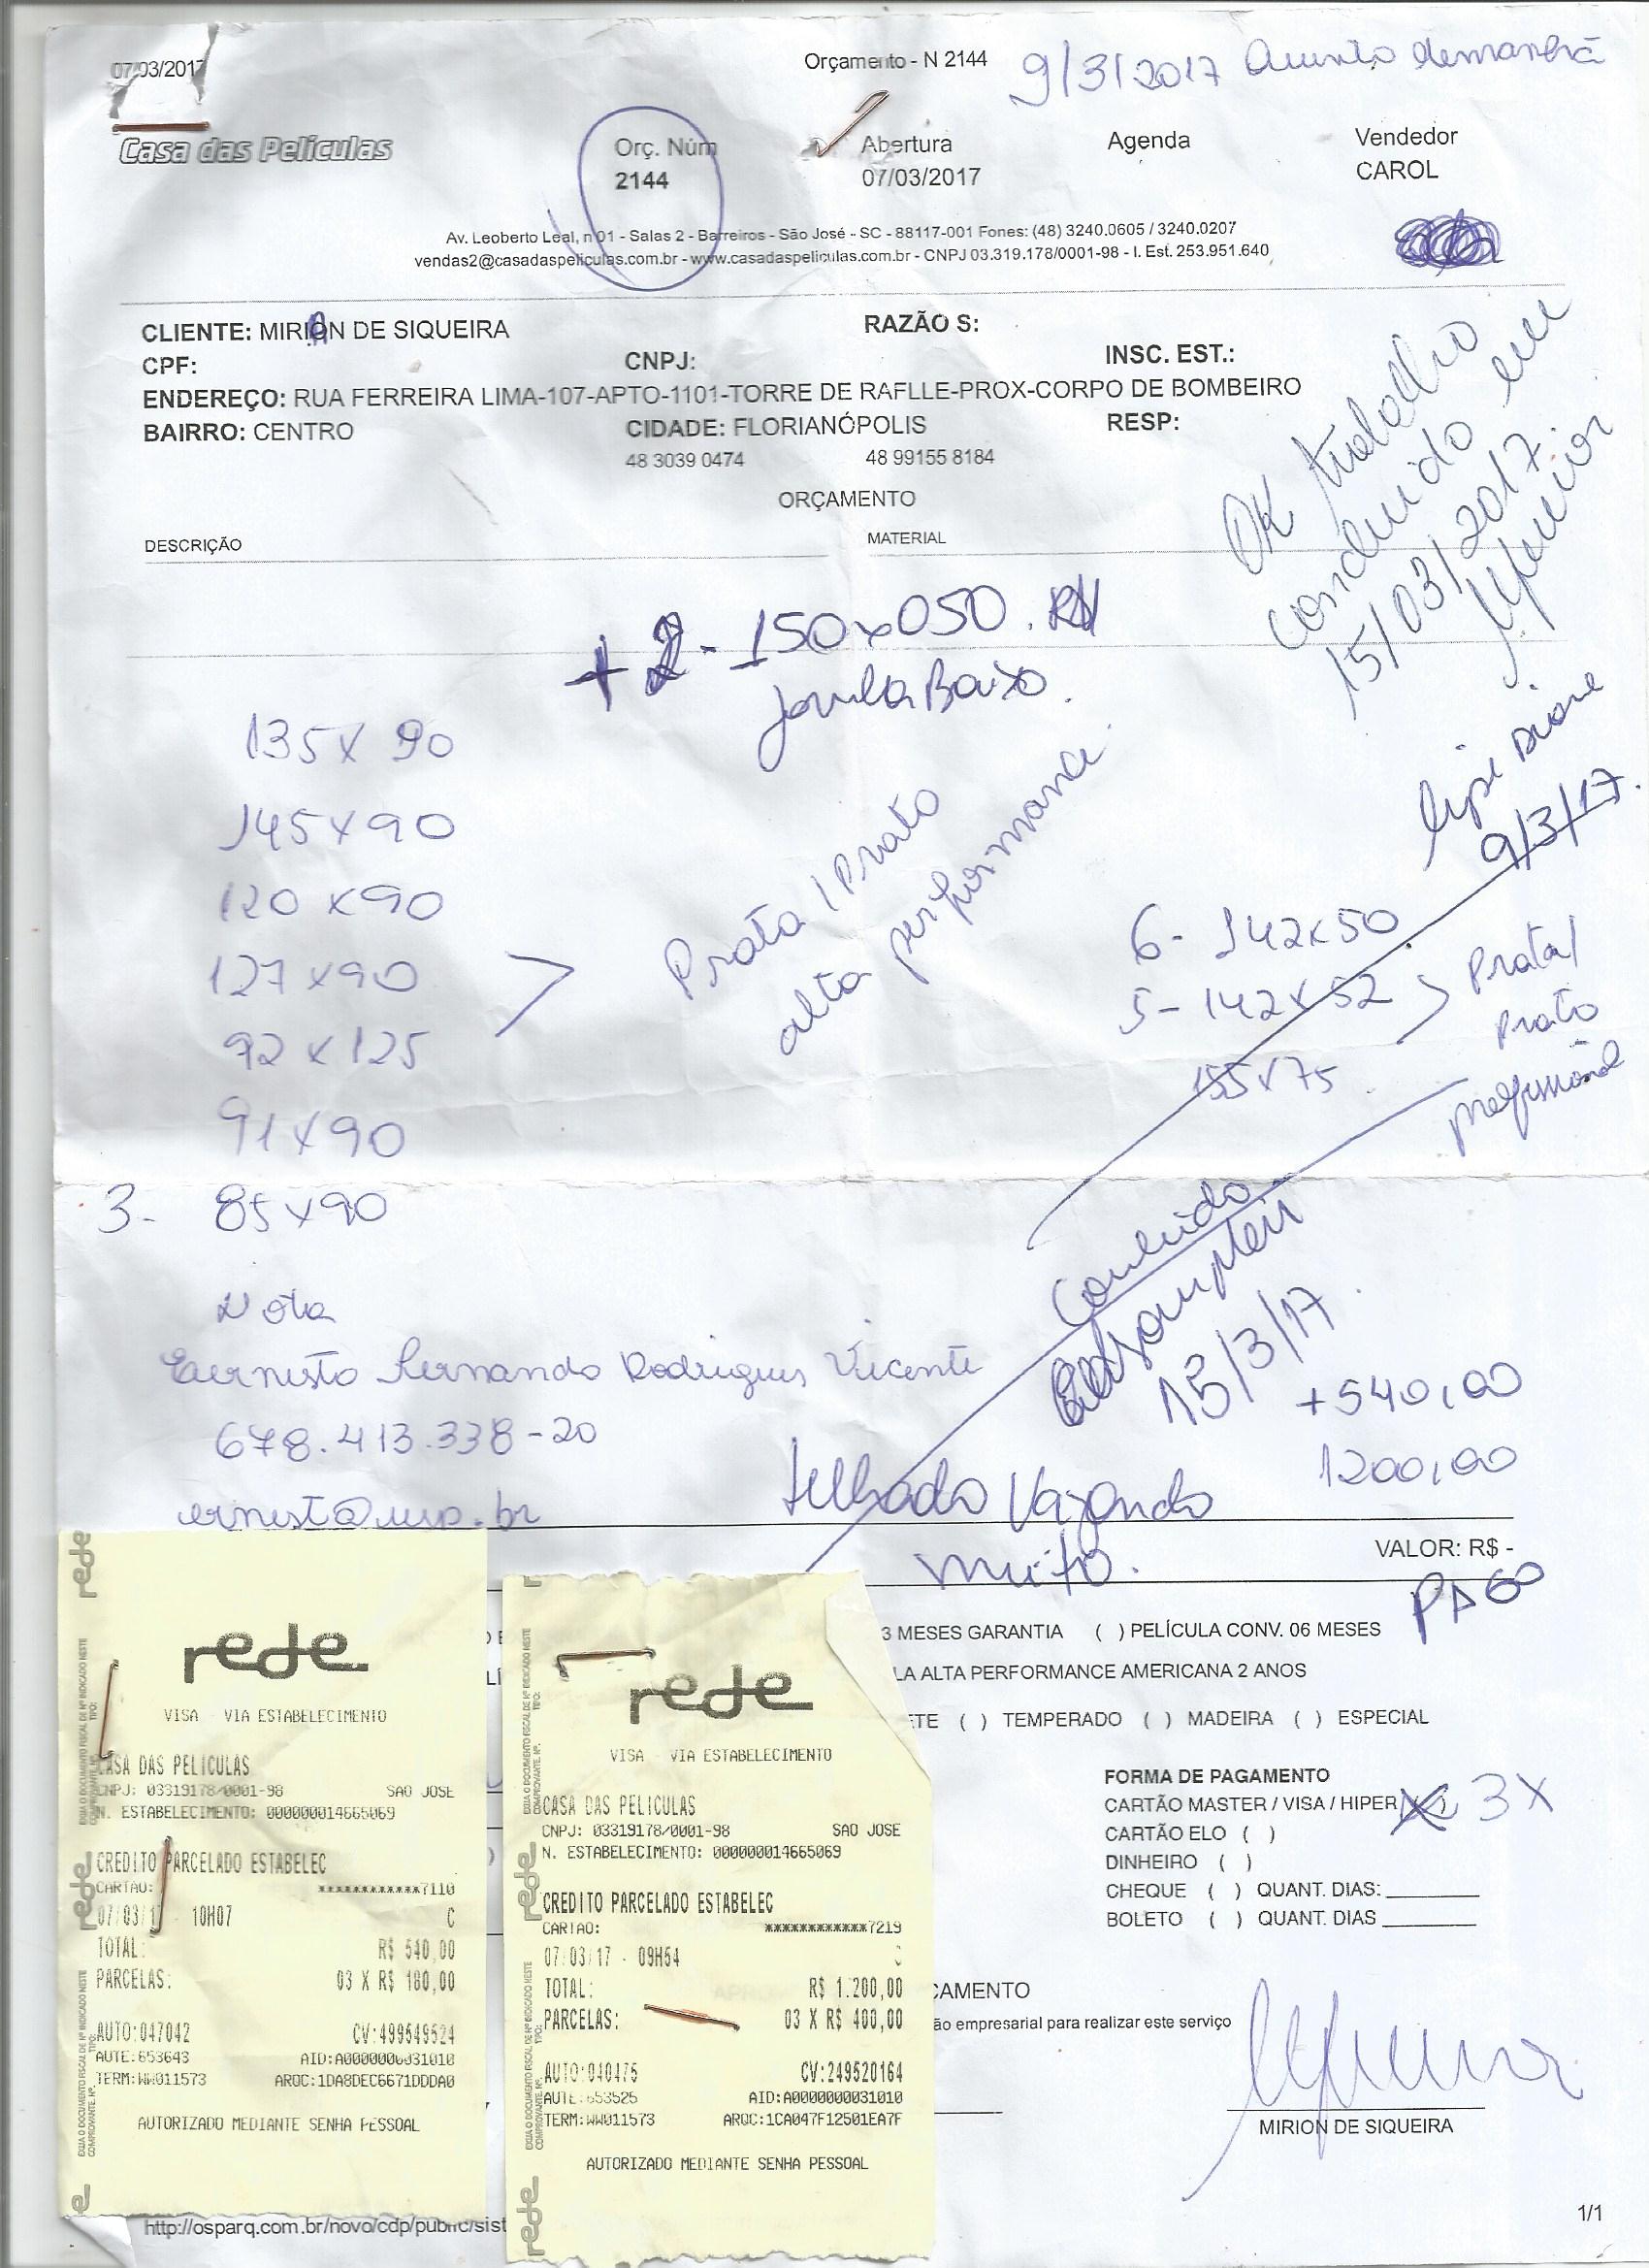 07/03/2017
Orçamento - N 2144
9/3/2017
Casa das Películas
Orç. Núm
2144
Abertura
07/03/2017
Agenda
Vendedor
CAROL
Av. Leoberto Leal, n 01 - Salas 2 - Barreiros - São José - SC - 88117-001 Fones: (48) 3240.0605 / 3240.0207
vendas2@casadaspeliculas.com.br - www.casadaspeliculas.com.br - CNPJ 03.319.178/0001-98 - I. Est. 253.951.640
CLIENTE: MIRIAN DE SIQUEIRA
RAZÃO S:
CPF:
CNPJ:
INSC. EST.:
ENDEREÇO: RUA FERREIRA LIMA-107-APTO-1101-TORRE DE RAFLLE-PROX-CORPO DE BOMBEIRO
BAIRRO: CENTRO
CIDADE: FLORIANÓPOLIS
RESP:
48 3039 0474
48 99155 8184
OK trabalho
concluido em
15/03/2017.
ORÇAMENTO
DESCRIÇÃO
MATERIAL
+ 2 - 150x050.
janela Baixo.
135x90
145x90
120x90
127x90
92x125
91x90
3- 85x90
Prata / Prata
alta performance
9/3/17.
6- 142x50
5- 142x52
155x75
Prata/
prata
profissional
Concluido
15/3/17
Nota
Ernesto Fernando Rodrigues Vicente
678.413.338-20
+540,00
1200,00
telhado Vazando
muito.
VALOR: R$ -
PAGO
3 MESES GARANTIA ( ) PELÍCULA CONV. 06 MESES
LA ALTA PERFORMANCE AMERICANA 2 ANOS
ETE ( ) TEMPERADO ( ) MADEIRA ( ) ESPECIAL
FORMA DE PAGAMENTO
CARTÃO MASTER / VISA / HIPER (X) 3X
CARTÃO ELO ( )
DINHEIRO ( )
CHEQUE ( ) QUANT. DIAS:
BOLETO ( ) QUANT. DIAS
CAMENTO
ão empresarial para realizar este serviço
MIRION DE SIQUEIRA
rede
VISA - VIA ESTABELECIMENTO
CASA DAS PELICULAS
CNPJ: 03319178/0001-98 SAO JOSE
N. ESTABELECIMENTO: 000000014665069
CREDITO PARCELADO ESTABELEC
CARTAO: ************7110
07/03/17 10H07 C
TOTAL: R$ 540,00
PARCELAS: 03 X R$ 180,00
AUTO:047042 CV:499549524
AUTE:653643 AID:A0000000031010
TERM:WW011573 ARQC:1DA8DEC6671DDDA0
AUTORIZADO MEDIANTE SENHA PESSOAL
rede
VISA VIA ESTABELECIMENTO
CASA DAS PELICULAS
CNPJ: 03319178/0001-98 SAO JOSE
N. ESTABELECIMENTO: 000000014665069
CREDITO PARCELADO ESTABELEC
CARTAO: ************7219
07/03/17 - 09H54
TOTAL: R$ 1.200,00
PARCELAS: 03 X R$ 400,00
AUTO:040475 CV:249520164
AUTE:653525 AID:A0000000031010
TERM:WW011573 ARQC:1CA047F12501EA7F
AUTORIZADO MEDIANTE SENHA PESSOAL
http://osparq.com.br/novo/cdp/public/sist
1/1